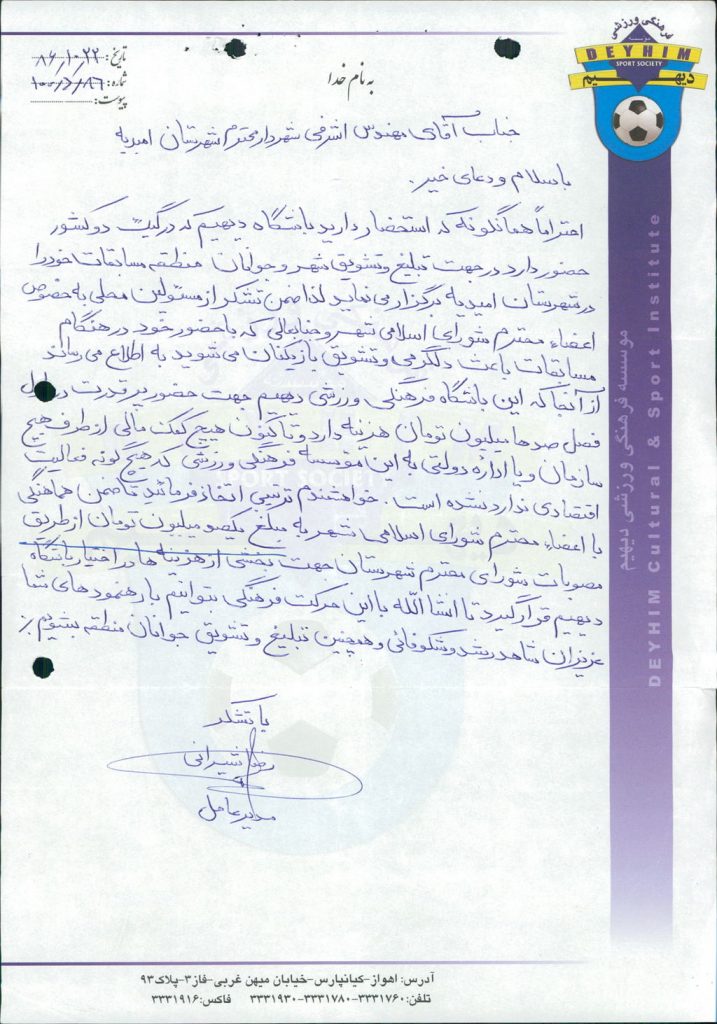 فرهنگی ورزشی
موسسه
DEYHIM
SPORT SOCIETY
دیهیم
تاریخ: ۸۶،۱۰،۲۲
شماره:
پیوست:
به نام خدا
جناب آقای مهندس اشرفی شهردار محترم شهرستان امیدیه
با سلام و دعای خیر.
احتراماً همانگونه که استحضار دارید باشگاه دیهیم که در لیگ دو کشور
حضور دارد در جهت تبلیغ و تشویق شهر و جوانان منطقه مسابقات خود را
در شهرستان امیدیه برگزار می نماید لذا ضمن تشکر از مسئولین محلی به خصوص
اعضاء محترم شورای اسلامی شهر و جنابعالی که با حضور خود در هنگام
مسابقات باعث دلگرمی و تشویق بازیکنان می شوید به اطلاع می رساند
از آنجا که این باشگاه فرهنگی ورزشی دیهیم جهت حضور پر قدرت در طول
فصل صدها میلیون تومان هزینه دارد و تاکنون هیچ کمک مالی از طرف هیچ
سازمان و یا اداره دولتی به این مؤسسه فرهنگی ورزشی که هیچ گونه فعالیت
اقتصادی ندارد نشده است. خواهشمندم ترتیبی اتخاذ فرمائید تا ضمن هماهنگی
با اعضاء محترم شورای اسلامی شهر به مبلغ یکصد میلیون تومان از طریق
مصوبات شورای محترم شهرستان جهت بخشی از هزینه ها در اختیار باشگاه
دیهیم قرار گیرد تا انشا الله با این حرکت فرهنگی بتوانیم با رهنمودهای شما
عزیزان شاهد رشد و شکوفائی و همچنین تبلیغ و تشویق جوانان منطقه بشویم٪
با تشکر
رضا شیرانی
مدیر عامل
موسسه فرهنگی ورزشی دیهیم
DEYHIM Cultural & Sport Institute
SPORT SOCIETY
آدرس: اهواز-کیانپارس-خیابان میهن غربی-فاز۳-پلاک۹۳
تلفن:۳۳۳۱۷۶۰-۳۳۳۱۷۸۰-۳۳۳۱۹۳۰ فاکس:۳۳۳۱۹۱۶